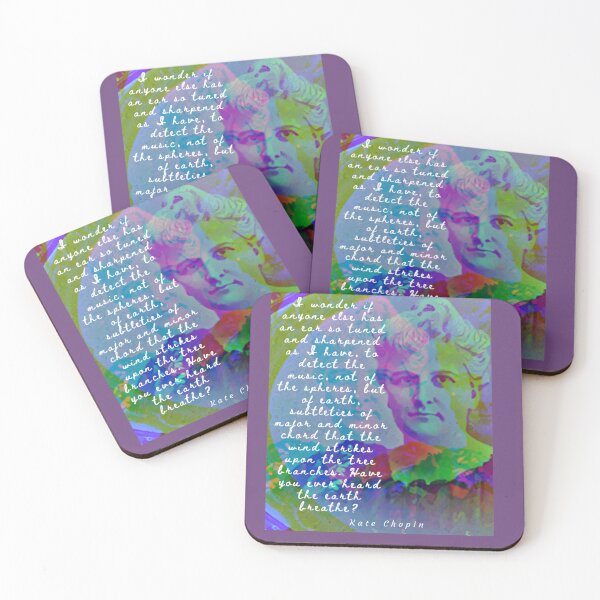 I wonder if
anyone else has
an ear so tuned
and sharpened
as I have, to
detect the
music, not of
the spheres, but
of earth,
subtleties
major
I wonder if
anyone else has
an ear so tuned
and sharpened
as I have, to
detect the
music, not of
the spheres, but
of earth,
subtleties of
major and minor
chord that the
wind strikes
upon the tree
branches. Have
I wonder if
anyone else has
an ear so tuned
and sharpened
as I have, to
detect the
music, not of
the spheres, but
of earth,
subtleties of
major and minor
chord that the
wind strikes
upon the tree
branches. Have
you ever heard
the earth
breathe?
Kate Ch
I wonder if
anyone else has
an ear so tuned
and sharpened
as I have, to
detect the
music, not of
the spheres, but
of earth,
subtleties of
major and minor
chord that the
wind strikes
upon the tree
branches. Have
you ever heard
the earth
breathe?
Kate Chopin